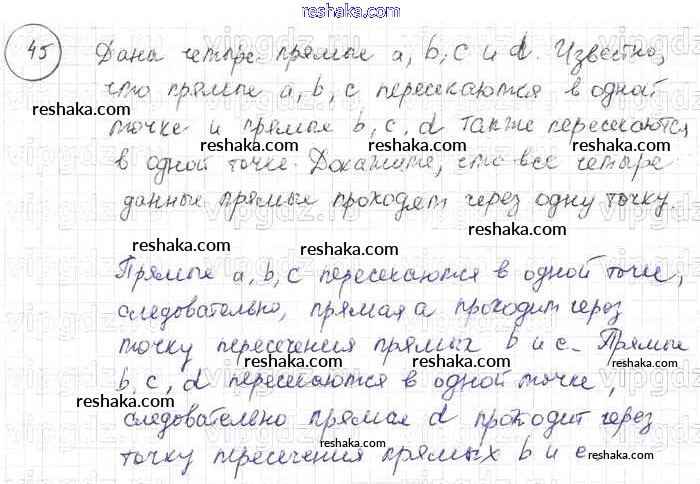 reshaka.com
45 Дана четыре прямые a, b, c и d. Известно,
что прямые a, b, c пересекаются в одной
reshaka.com reshaka.com
точке и прямые b, c, d также пересекаются
reshaka.com
в одной точке. Докажите, что все четыре
reshaka.com reshaka.com
данные прямые проходят через одну точку.
reshaka.com
Прямые a, b, c пересекаются в одной точке,
reshaka.com reshaka.com
следовательно, прямая a проходит через
reshaka.com
точку пересечения прямых b и c. Прямые
reshaka.com reshaka.com
b, c, d пересекаются в одной точке,
reshaka.com
следовательно прямая d проходит через
reshaka.com reshaka.com
точку пересечения прямых b и c
reshaka.com